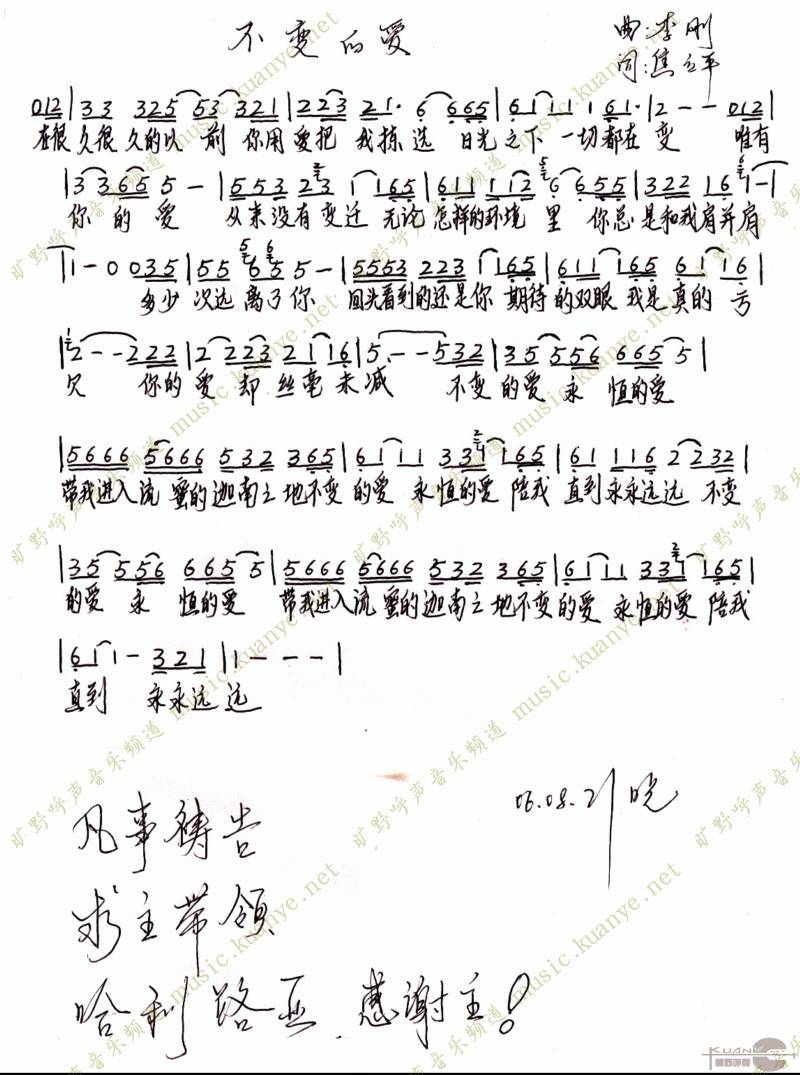 不变的爱
曲:李刚
词:焦立平
012|33 325 53 321|223 21· 6 665|6111 161·|2 - - 012|
在很久很久的以前 你用爱把我拣选 日光之下一切都在变 唯有
|33655 - |553 23 1165|611 112 6655|322 161-|
你的爱 从来没有变迁 无论怎样的环境里 你总是和我肩并肩
|1-0035|55 6555-|5553 223 1165|611165 6116|
多少次远离了你 回头看到的还是你 期待的双眼 我是真的亏
|2--222|2223 2116|5--532|35556 6655|
欠 你的爱却丝毫未减 不变的爱 永恒的爱
|5666 5666 532 365|6111 331165|61 116 2232|
带我进入流蜜的迦南之地不变的爱 永恒的爱 陪我 直到永永远远 不变
|35556 6655|5666 5666 532 365|6111 331165|
的爱 永恒的爱 带我进入流蜜的迦南之地不变的爱 永恒的爱 陪我
|611- 321|1---|
直到 永永远远
06.08.21 晓
凡事祷告
求主带领
哈利路亚.感谢主!
旷野呼声音乐频道 music.kuanye.net
KUAN